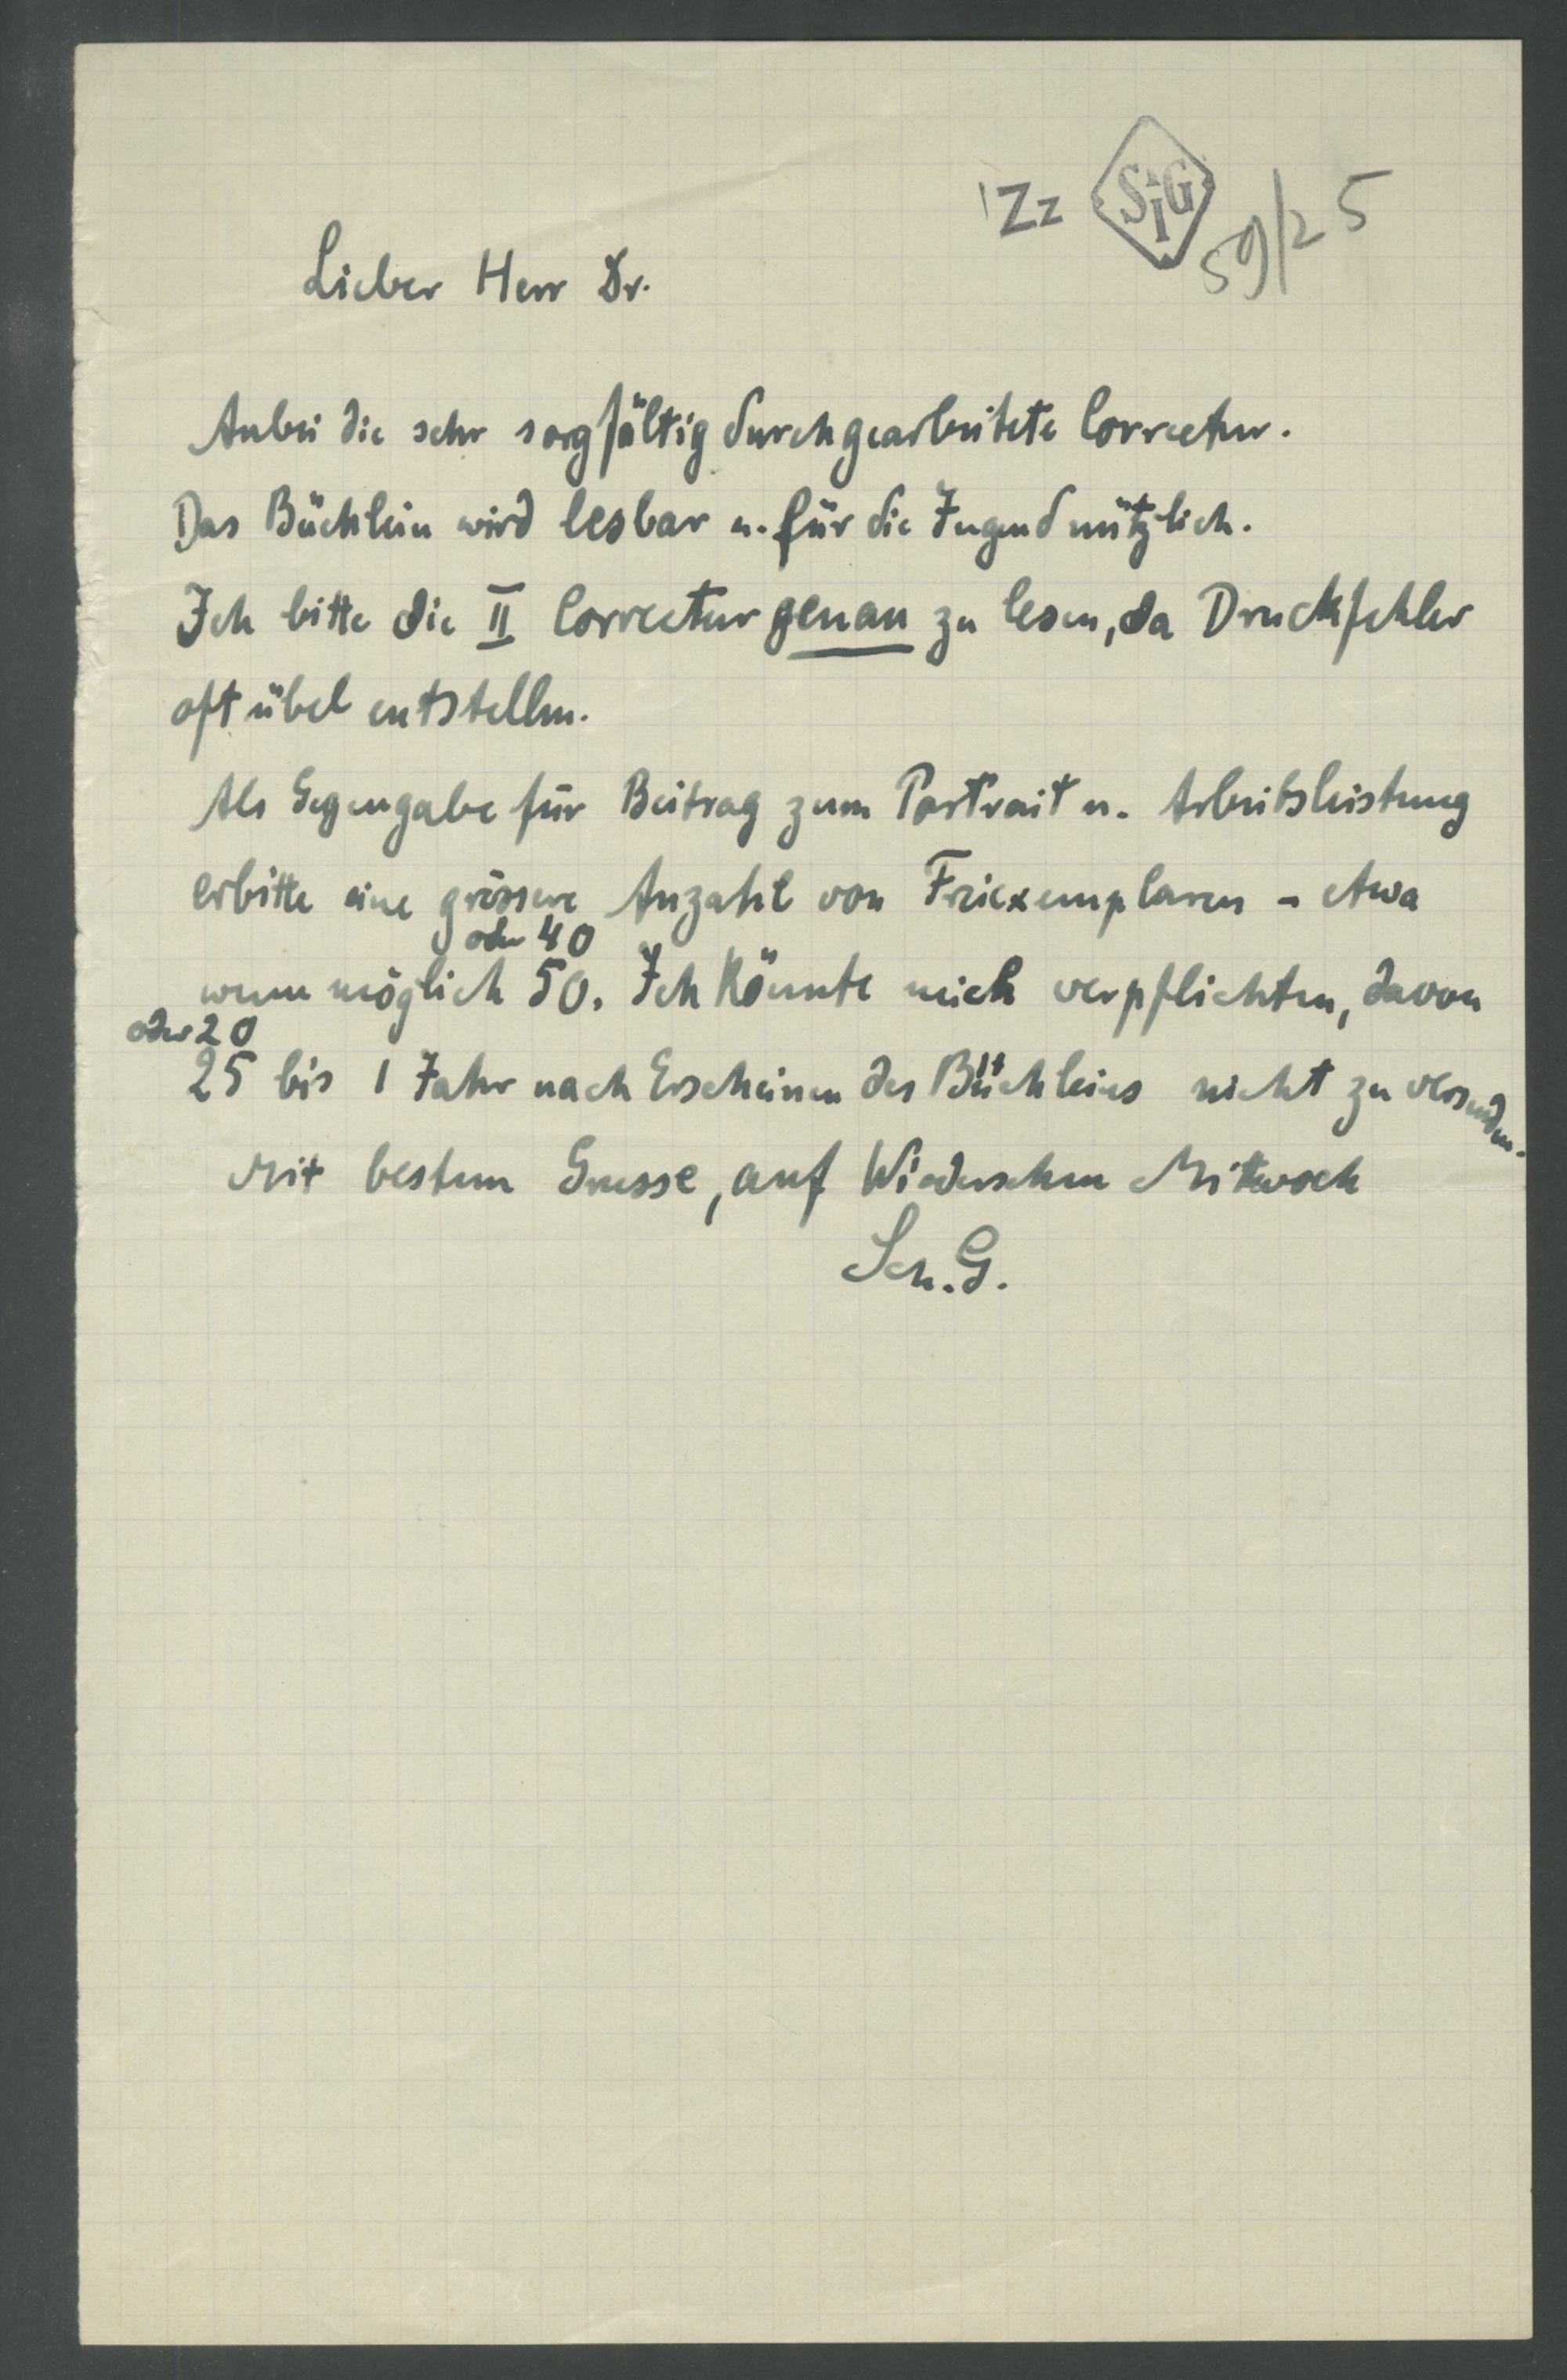 Zz SIG 59/25
Lieber Herr Dr.
Anbei die sehr sorgfältig durchgearbeitete Correctur.
Das Büchlein wird lesbar u. für die Jugend nützlich.
Ich bitte die II Correctur genau zu lesen, da Druckfehler
oft übel entstellen.
Als Gegengabe für Beitrag zum Portrait u. Arbeitsleistung
erbitte eine grössere Anzahl von Freiexemplaren - etwa
oder 40
wenn möglich 50. Ich könnte mich verpflichten, davon
oder 20
25 bis 1 Jahr nach Erscheinen des Büchleins nicht zu versenden.
Mit bestem Grusse, auf Wiedersehen Mittwoch
Sch. G.